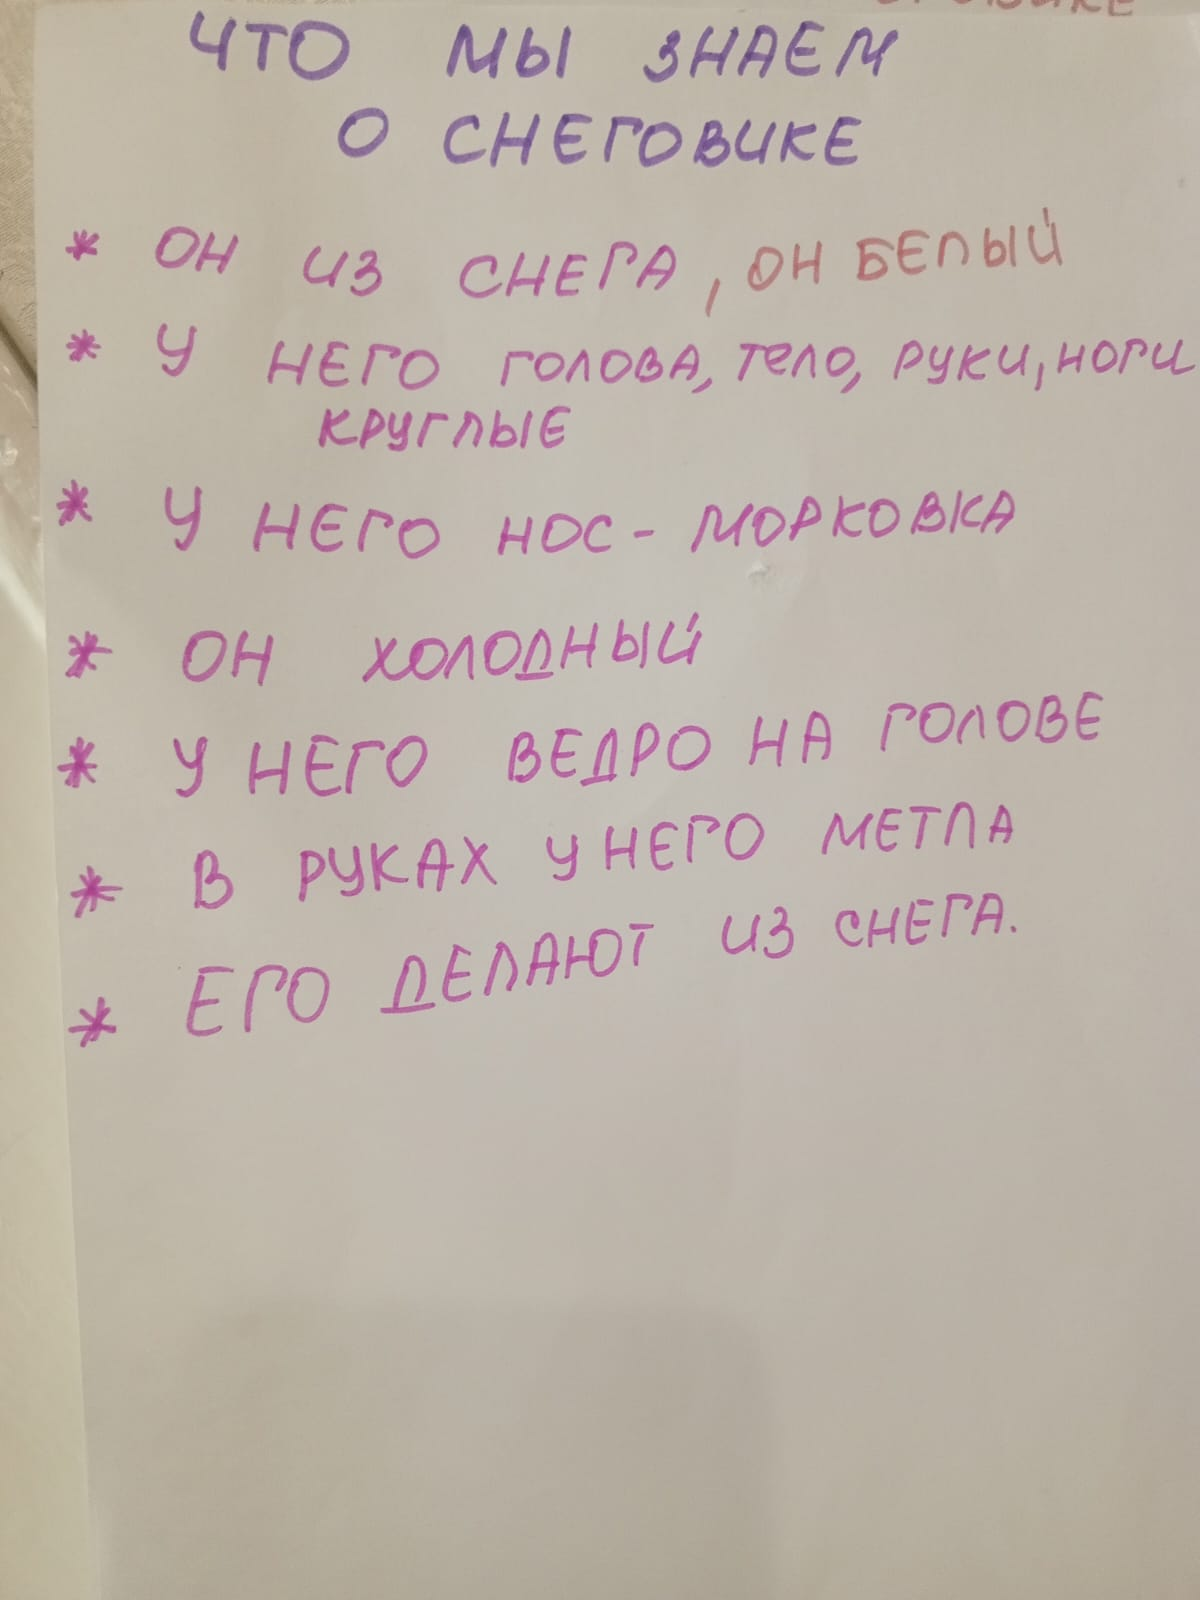 ЧТО МЫ ЗНАЕМ
О СНЕГОВИКЕ
* ОН ИЗ СНЕГА, ОН БЕЛЫЙ
* У НЕГО ГОЛОВА, ТЕЛО, РУКИ, НОГИ
КРУГЛЫЕ
* У НЕГО НОС - МОРКОВКА
* ОН ХОЛОДНЫЙ
* У НЕГО ВЕДРО НА ГОЛОВЕ
* В РУКАХ У НЕГО МЕТЛА
* ЕГО ДЕЛАЮТ ИЗ СНЕГА.